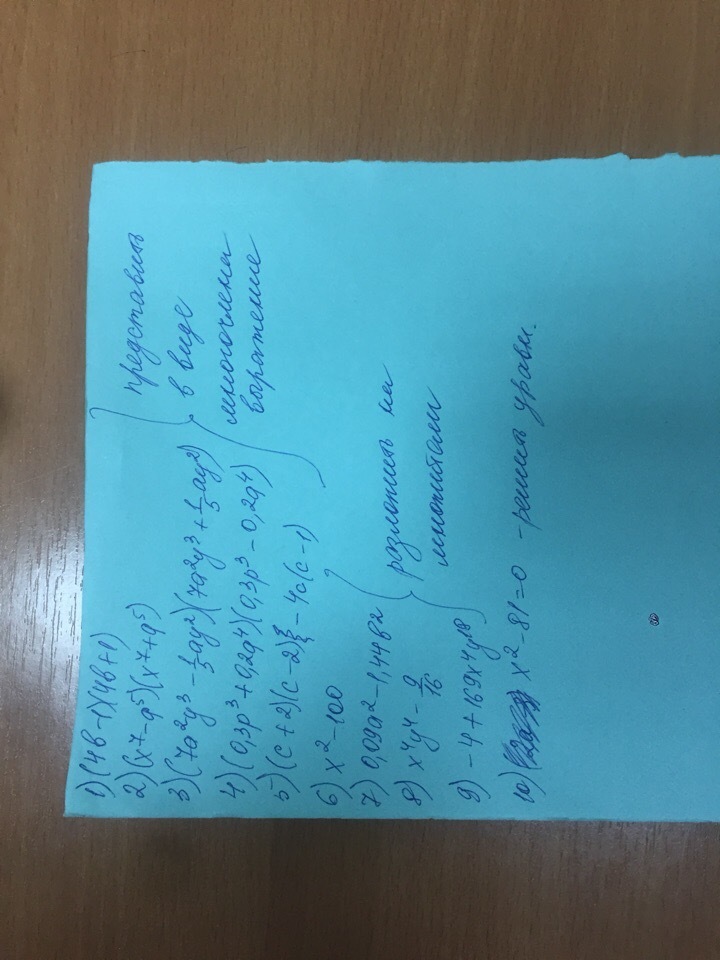 1) (4b-1)(4b+1)
2) (x⁷-a⁵)(x⁷+a⁵)
3) (7a²y³-1/5ay²)(7a²y³+1/5ay²)
4) (0,3p³+0,2a⁴)(0,3p³-0,2a⁴)
5) (c+2)(c-2)-4c(c-1)
представить
в виде
многочлена
выражение
6) x²-100
7) 0,09a²-1,44b²
8) x⁴y⁴-9/16
9) -4+169x⁴y¹⁸
разложить на
множители
10) x²-81=0 -решить уравн.